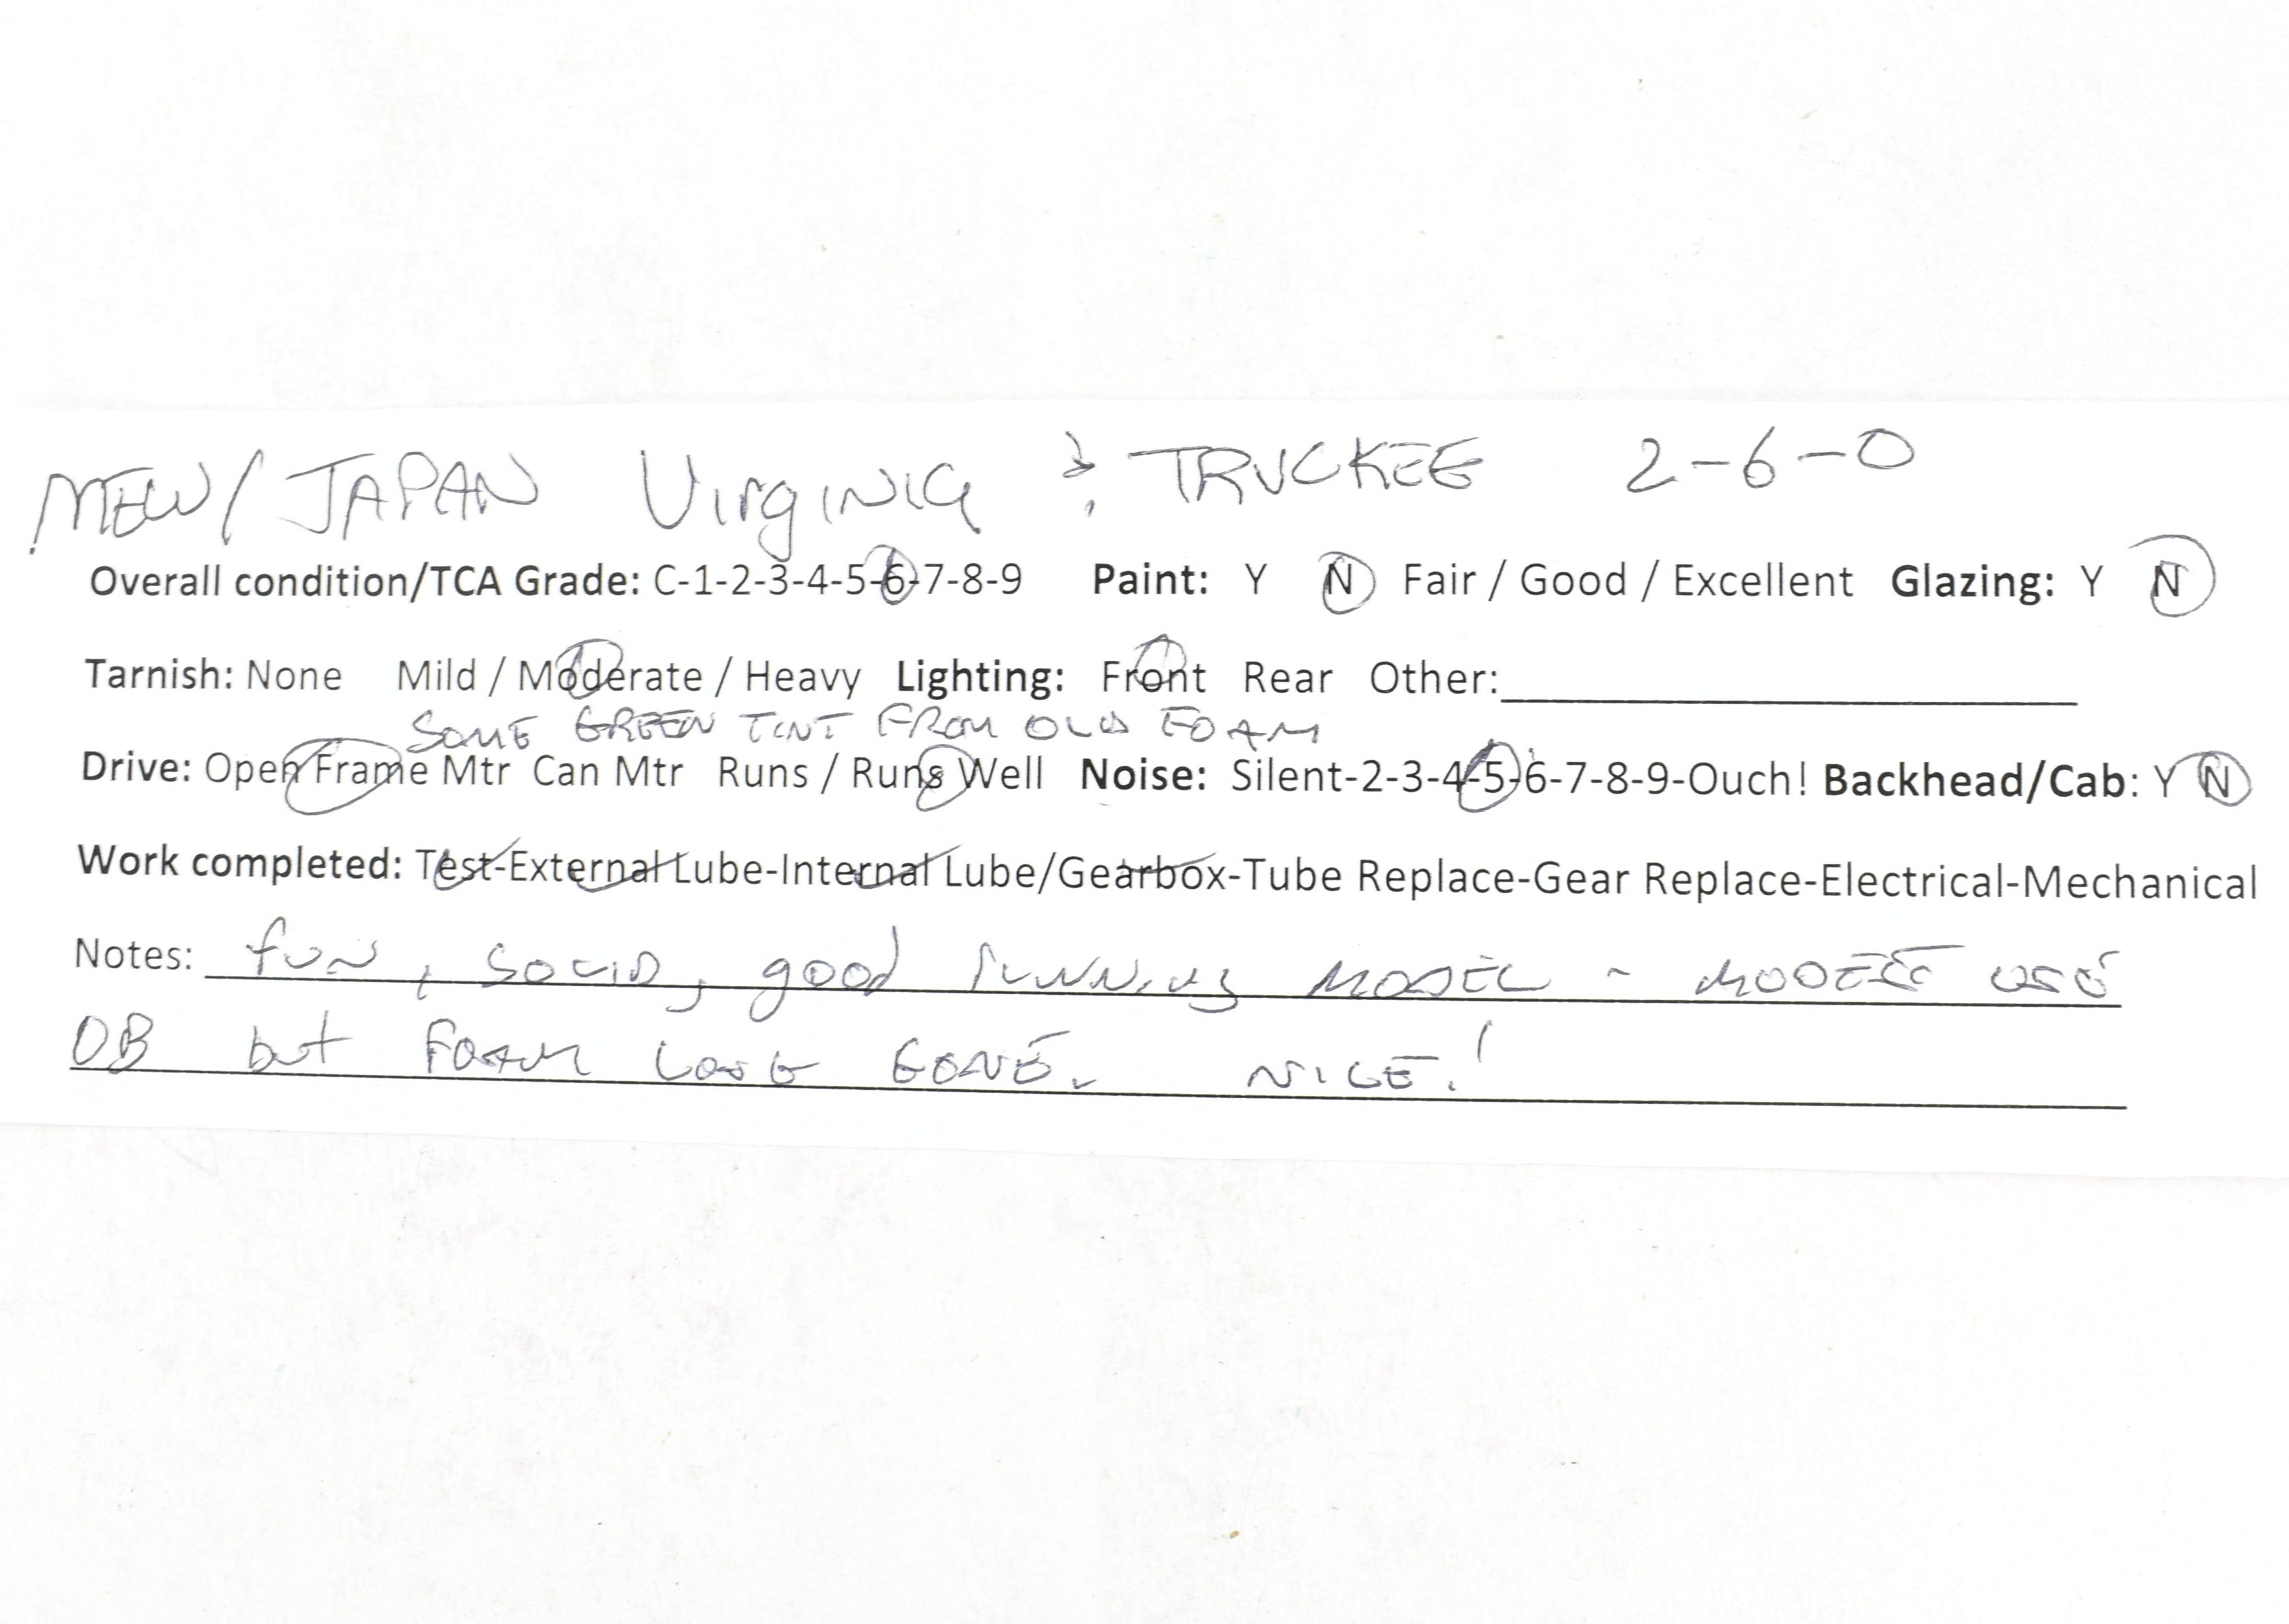 MEW/JAPAN Virginia & TRUCKEE 2-6-0
Overall condition/TCA Grade: C-1-2-3-4-5-6-7-8-9 Paint: Y N Fair / Good / Excellent Glazing: Y N
Tarnish: None Mild / Moderate / Heavy Lighting: Front Rear Other:
SOME GREEN TINT FROM OLD FOAM
Drive: Open Frame Mtr Can Mtr Runs / Runs Well Noise: Silent-2-3-4-5-6-7-8-9-Ouch! Backhead/Cab: Y N
Work completed: Test-External Lube-Internal Lube/Gearbox-Tube Replace-Gear Replace-Electrical-Mechanical
Notes: fun, SOLID, good running MODEL - MODEST USE
OB but FOAM LONG GONE. NICE!